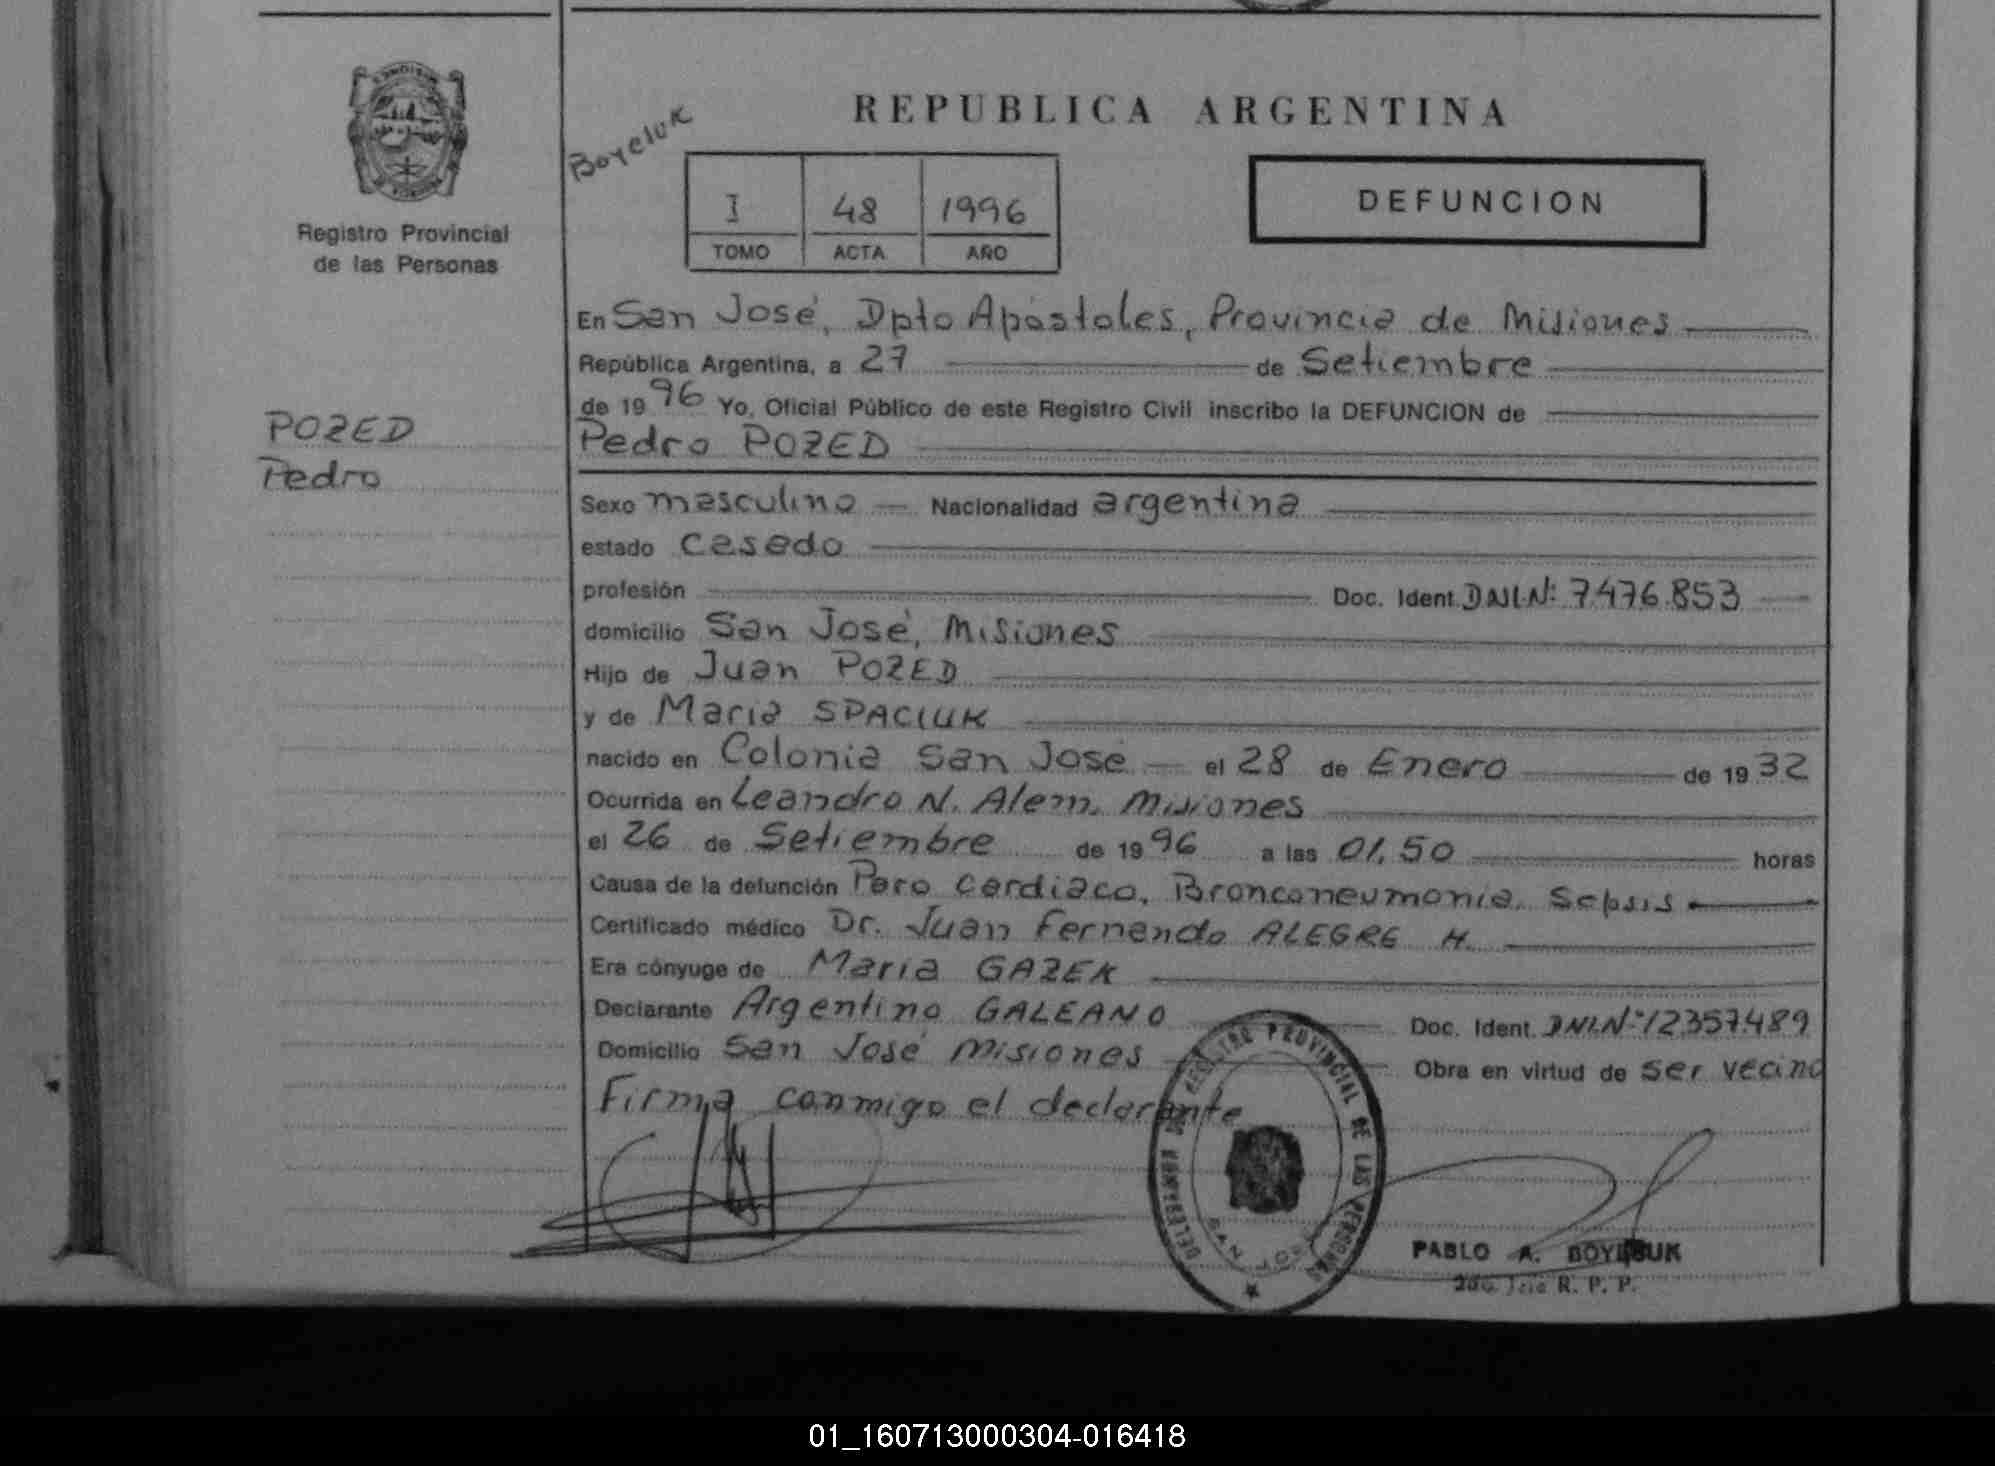 REPUBLICA ARGENTINA
Boyeluk
I 48 1996
TOMO ACTA AÑO
DEFUNCION
Registro Provincial
de las Personas
POZED
Pedro
En San José, Dpto Apóstoles, Provincia de Misiones
República Argentina, a 27 de Setiembre
de 1996 Yo, Oficial Público de este Registro Civil inscribo la DEFUNCION de
Pedro POZED
Sexo masculino Nacionalidad argentina
estado casado
profesión Doc. Ident. DNI.Nº: 7.476.853
domicilio San José, Misiones
Hijo de Juan POZED
y de Maria SPACIUK
nacido en Colonia San José el 28 de Enero de 1932
Ocurrida en Leandro N. Alem, Misiones
el 26 de Setiembre de 1996 a las 01,50 horas
Causa de la defunción Paro Cardiaco, Bronconeumonia, Sepsis
Certificado médico Dr. Juan Fernando ALEGRE H.
Era cónyuge de Maria GAZEK
Declarante Argentino GALEANO Doc. Ident. DNI.Nº: 12.357.489
Domicilio San José Misiones Obra en virtud de ser vecino
Firma conmigo el declarante
DELEGACION DEL REGISTRO PROVINCIAL DE LAS PERSONAS
SAN JOSE
PABLO A.
R. P. P.
01_160713000304-016418